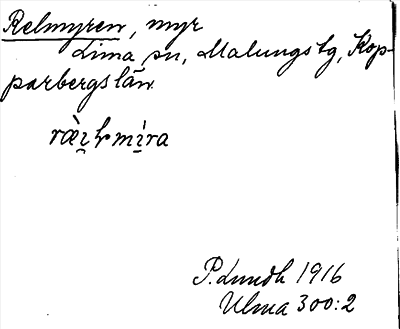 Relmyren, myr
Lima sn, Malungs tg, Kop-
parbergs län
P. Lundh 1916
Ulma 300:2